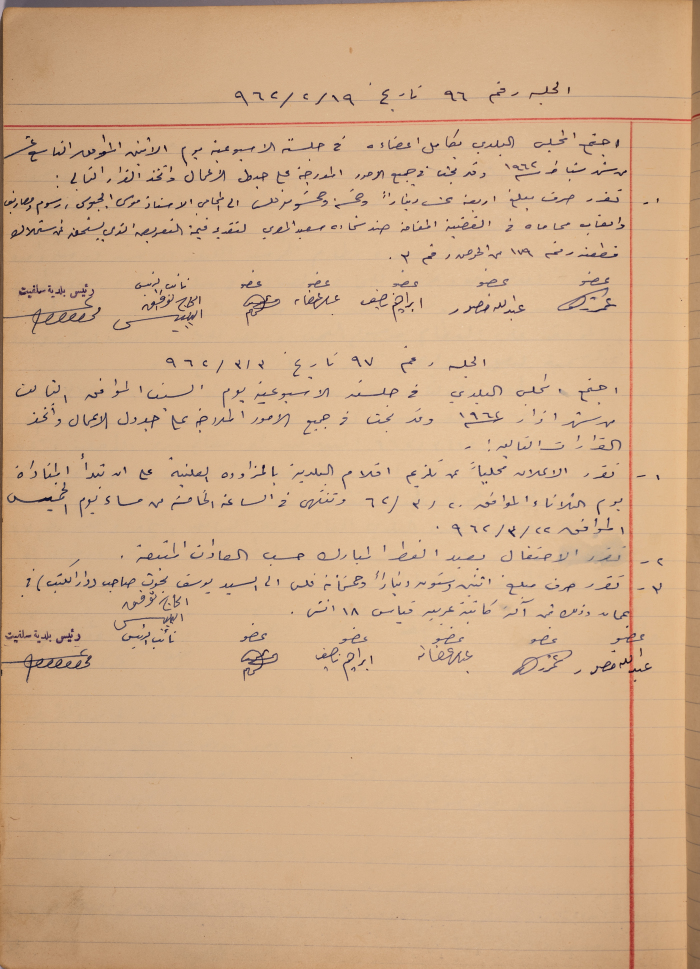 الجلسة رقم ٩٦ تاريخ ٩٦٢/٢/١٩
اجتمع المجلس البلدي بكامل اعضاءه في جلسته الاسبوعية يوم الاثنين الموافق التاسع عشر
من شهر شباط سنة ١٩٦٢ وقد بحث في جميع الامور المدرجة على جدول الاعمال واتخذ القرار التالي :
١- تقرر صرف مبلغ اربعة عشر دينارا وخمسة وخمسون فلس الى المحامي الاستاذ موسى الجيوسي رسوم ومصاريف
واتعاب محاماه في القضية المقامة ضد سعيد المصري لتقدير قيمة التعويض الذي يستحق من استملاك
قطعة رقم ١٨٩ من الحوض رقم ٣ .
عضو عضو عضو عضو عضو نائب الرئيس رئيس بلدية سلفيت
عبدالله خصور ابراهيم نصيف الحاج توفيق
الجلسة رقم ٩٧ تاريخ ٩٦٢/٣/٣
اجتمع المجلس البلدي في جلسته الاسبوعية يوم السبت الموافق الثالث
من شهر اذار سنة ١٩٦٢ وقد بحث في جميع الامور المدرجة على جدول الاعمال واتخذ
القرارات التالية :-
١- تقرر الاعلان محلياً عن تلزيم اقلام البلدية بالمزاودة العلنية على ان تبدأ المناداة
يوم الثلاثاء الموافق ٦٢/٣/٢٠ وتنتهي في الساعة الخامسة من مساء يوم الخميس
الموافق ٩٦٢/٣/٢٢ .
٢- تقرر الاحتفال بعيد الفطر المبارك حسب العادات المتبعة .
٣- تقرر صرف مبلغ اثنين وستون دينارا وخمسماية فلس الى السيد يوسف صاحب (دار الكتب) في
عمان وذلك ثمن آلة كاتبة عربية قياس ١٨ انش .
الحاج توفيق
عضو عضو عضو عضو عضو نائب الرئيس رئيس بلدية سلفيت
عبدالله خصور ابراهيم نصيف